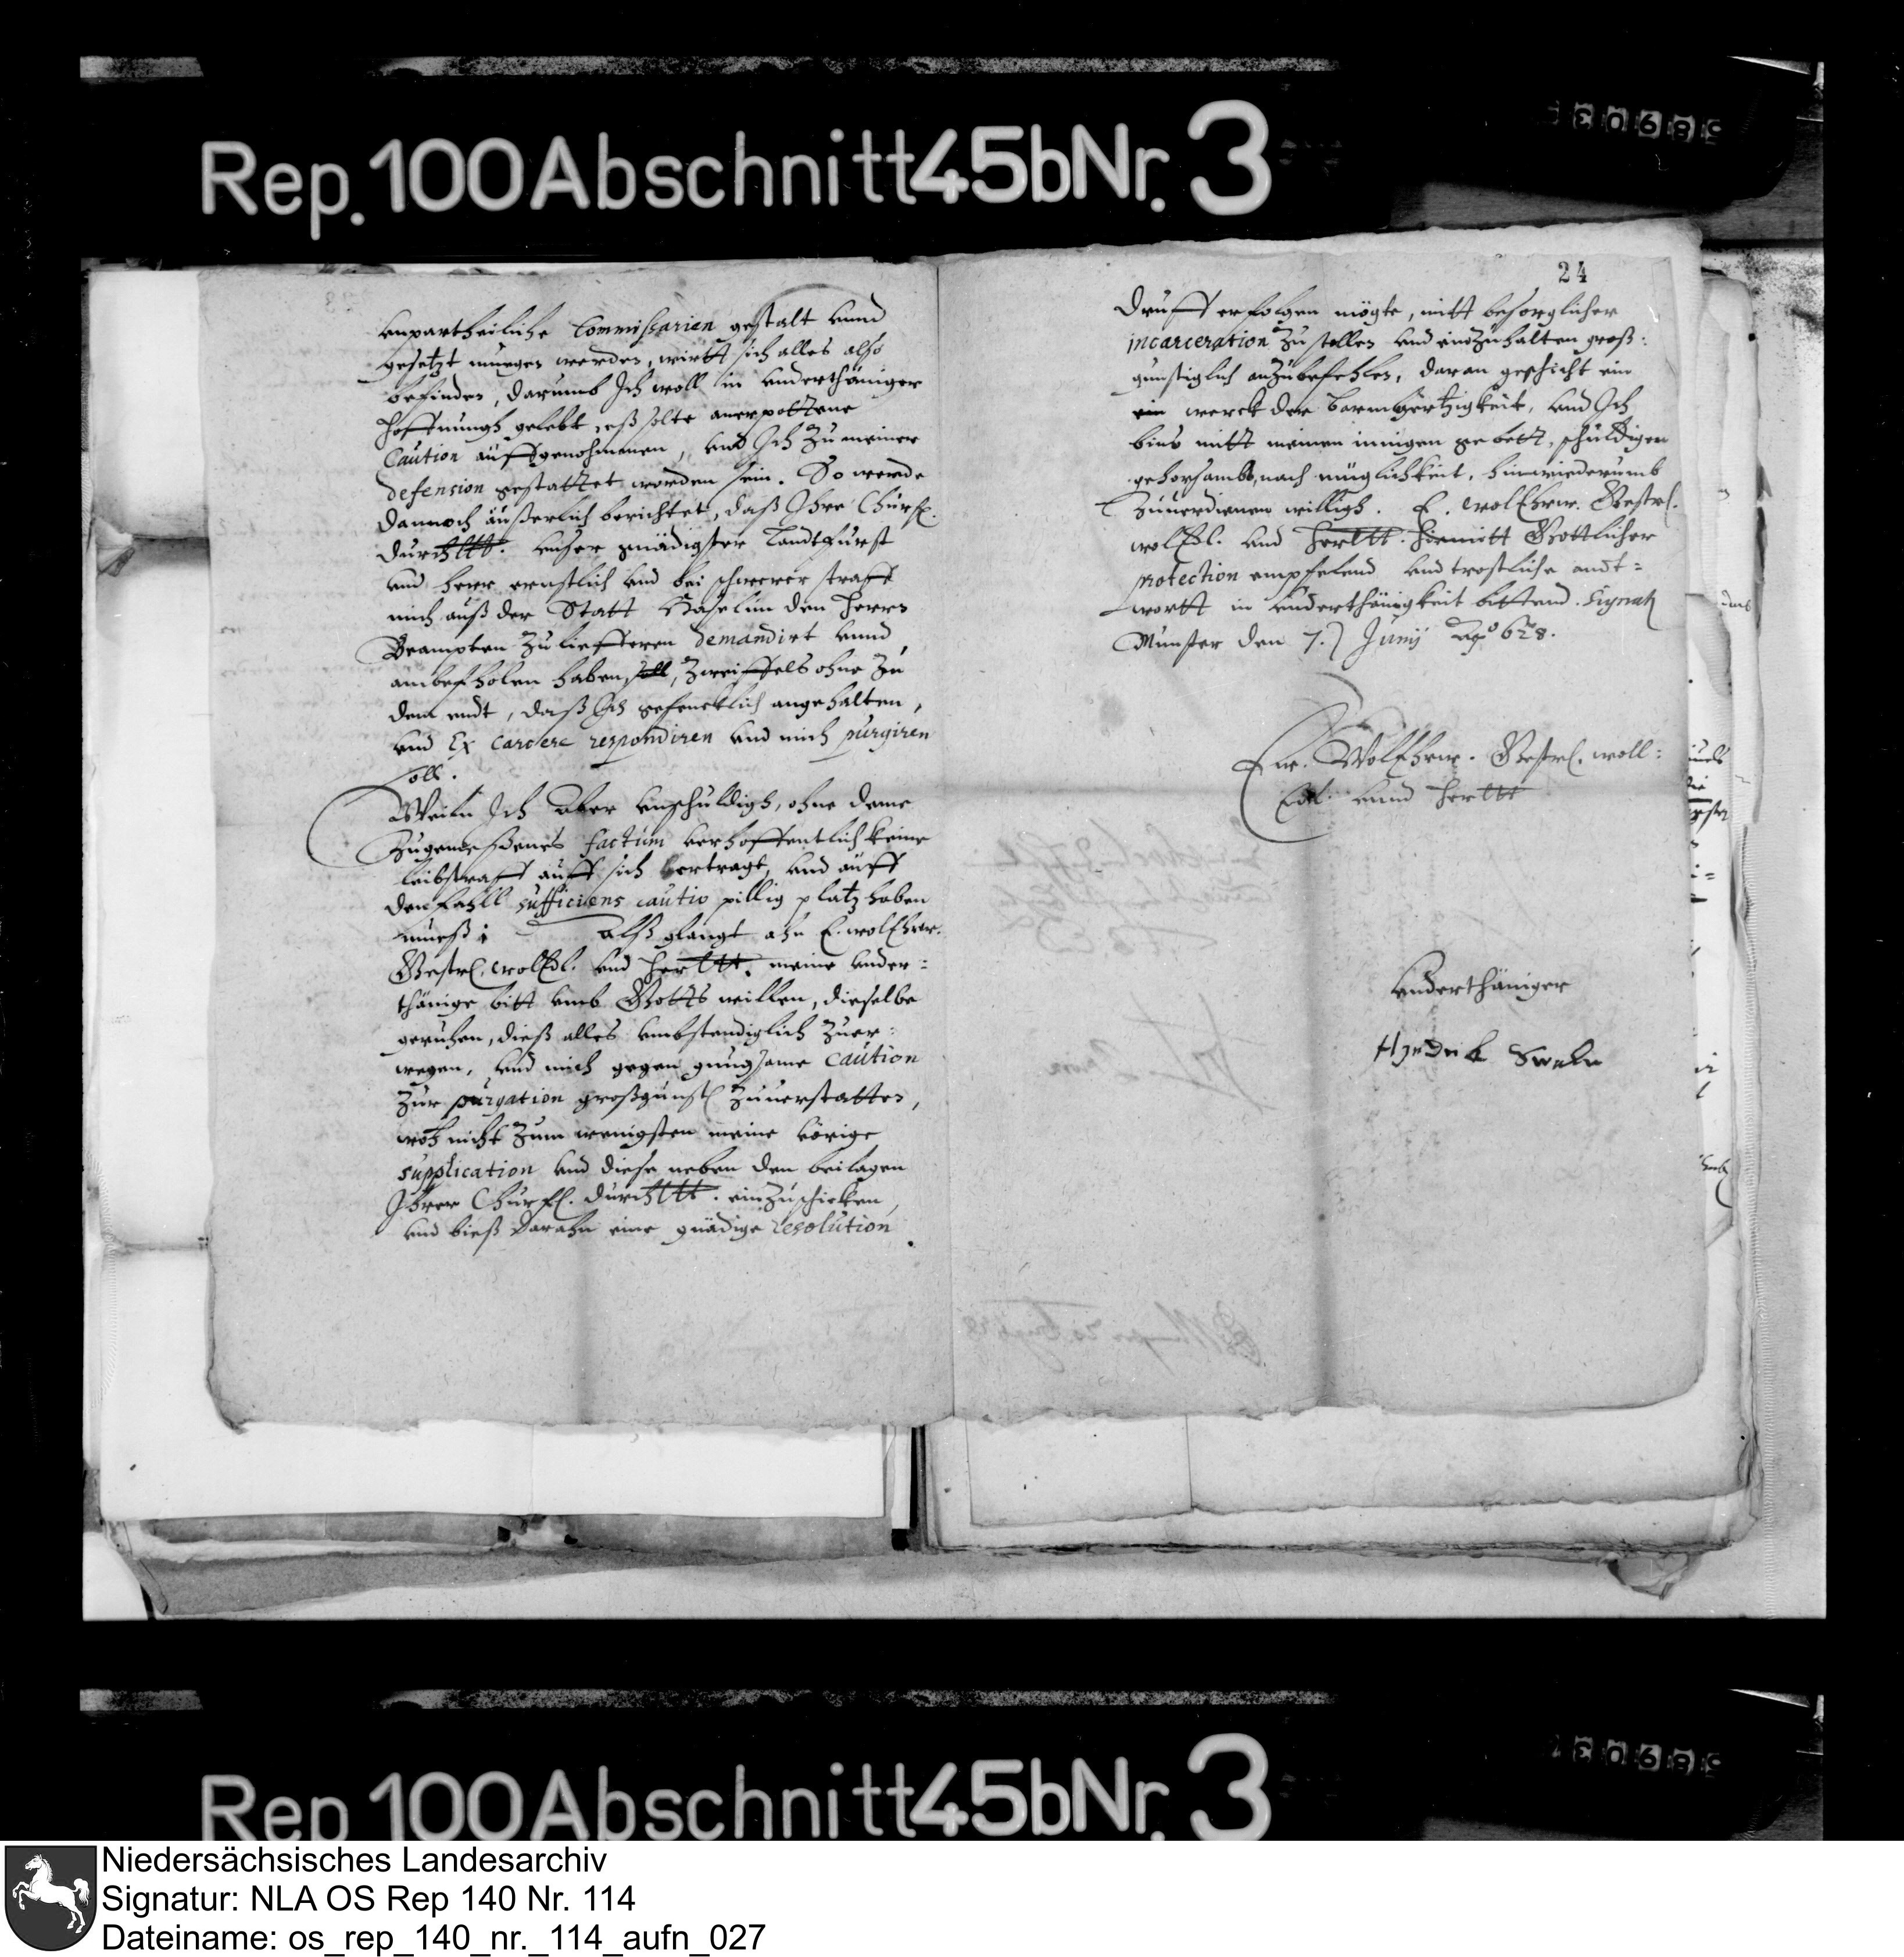 Rep. 100 Abschnitt 45b Nr. 3
unpartheiliche Commissarien gestalt unnd
gesetzt mueges werden, wirtt sich alles also
befinden, darumb Ich woll in underthäniger
Hoffnungh gelebt, eß solte anerpottene
Caution auffgenohmmen, und Ich zu meiner
defension gestattet worden sein. So werde
dannoch äußerlich berichtet, daß Ihre Churf.
durchltt. unser gnädigster Landtfürst
und herr ernstlich und bei schwerer straff
mich auß der Statt Haselün den Herrn
Beampten zu lieffteren demandirt unnd
anbefholen haben soll, Zweiffels ohne zu
dem endt, daß Ich gefencklich angehalten,
und Ex carcere respondiren und mich purgiren
soll.
Weiln Ich aber unschuldigh, ohne deme
zugemeßenes factum verhoffentlich keine
leibstraff auff sich vertragt, und auff
den fahll sufficiens cautio pillig platz haben
mueß; alß glangt ahn E. wolEhrw.
Gestr. wolEdl. und herltt. meine under=
thänige bitt umb Gotts willen, dieselbe
geruhen, dieß alles umbstendiglich zuer:
wegen, und mich gegen gnugsame caution
zur purgation großgunstl zuuerstatten,
woh nicht zum wenigsten meine vörige
supplication und diese neben den beilagen
Ihrer Churfl. durchltt. einzuschicken,
und bieß darahn eine gnädige resolution
24
drauff erfolgen mögte, mitt besorglicher
incarceration zu stellen und einzuhalten groß:
gunstiglich anzubefehlen, daran geschicht ein
ein werck der barmhertzigkeit, und Ich
bins mitt meinen innigen gebett, schuldigen
gehorsambs, nach müglichkeit, hinwiederumb
zuuerdienen willigh. E. wolEhrw. Gestrl.
wolEdl. und herltt. hiemitt Gottlicher
protection empfelend und trostliche andt=
wortt in underthänigkeit bittend. Signat.
Münster den 7. Junij Aō 628.
Ew. WolEhrw. Gestrl. woll:
Edl. unnd herltt
Underthäniger
Hendrik Sweln
Rep 100 Abschnitt 45b Nr. 3
Niedersächsisches Landesarchiv
Signatur: NLA OS Rep 140 Nr. 114
Dateiname: os_rep_140_nr._114_aufn_027